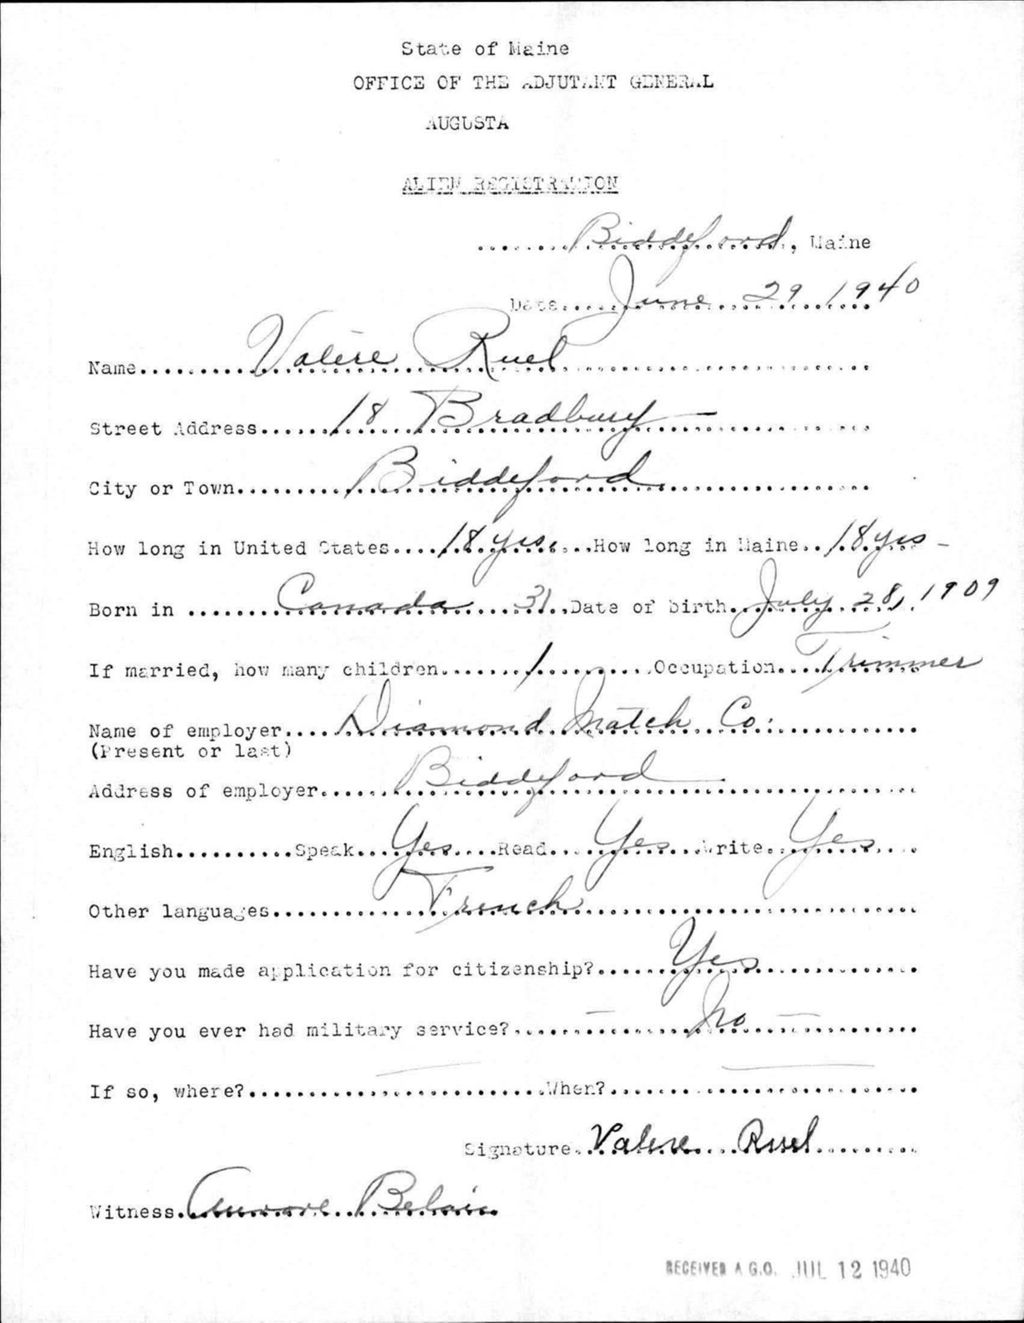 State of Maine
OFFICE OF THE ADJUTANT GENERAL
AUGUSTA
ALIEN REGISTRATION
Biddeford, Maine
Date June 29 1940
Name Valére Ruel
Street Address 18 Bradbury
City or Town Biddeford
How long in United States 18 yrs. How long in Maine 18 yrs
Born in Canada 31 Date of birth July 28, 1909
If married, how many children 1 Occupation Trimmer
Name of employer Diamond Match Co.
(Present or last)
Address of employer Biddeford
English Speak Yes Read Yes Write Yes
Other languages French
Have you made application for citizenship? Yes
Have you ever had military service? - No -
If so, where? — When? —
Signature Valére Ruel
Witness Aurore Belair
RECEIVED A.G.O. JUL 12 1940